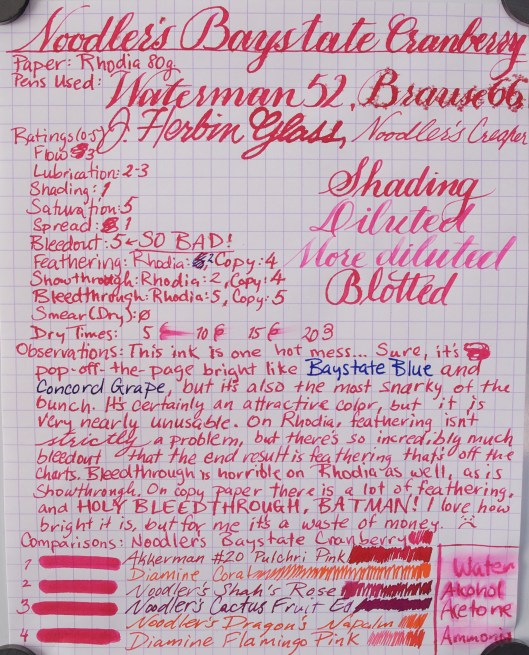 Noodler's Baystate Cranberry
Paper: Rhodia 80g
Pens Used: Waterman 52, Brause 66,
J. Herbin Glass, Noodler's Creaper
Ratings (0-5)
Flow 3
Lubrication: 2-3
Shading: 1
Saturation: 5
Spread: 1
Bleedout: 5 ← SO BAD!
Feathering: Rhodia: 2, Copy: 4
Showthrough: Rhodia: 2, Copy: 4
Bleedthrough: Rhodia: 5, Copy: 5
Smear (Dry): 0
Dry Times: 5 10 15 20 3
Shading
Diluted
More diluted
Blotted
Observations: This ink is one hot mess... Sure, it's
pop-off-the-page bright like Baystate Blue and
Concord Grape, but it's also the most snarky of the
bunch. It's certainly an attractive color, but it is
very nearly unusable. On Rhodia, feathering isn't
strictly a problem, but there's so incredibly much
bleedout that the end result is feathering that's off the
charts. Bleedthrough is horrible on Rhodia as well, as is
Showthrough. On copy paper there is a lot of feathering,
and HOLY BLEEDTHROUGH, BATMAN! I love how
bright it is, but for me it's a waste of money.
Comparisons: Noodler's Baystate Cranberry
1 Akkerman #20 Pulchri Pink
Diamine Coral
2 Noodler's Shah's Rose
3 Noodler's Cactus Fruit Eel
Noodler's Dragon's Napalm
4 Diamine Flamingo Pink
Water
Alcohol
Acetone
Ammonia